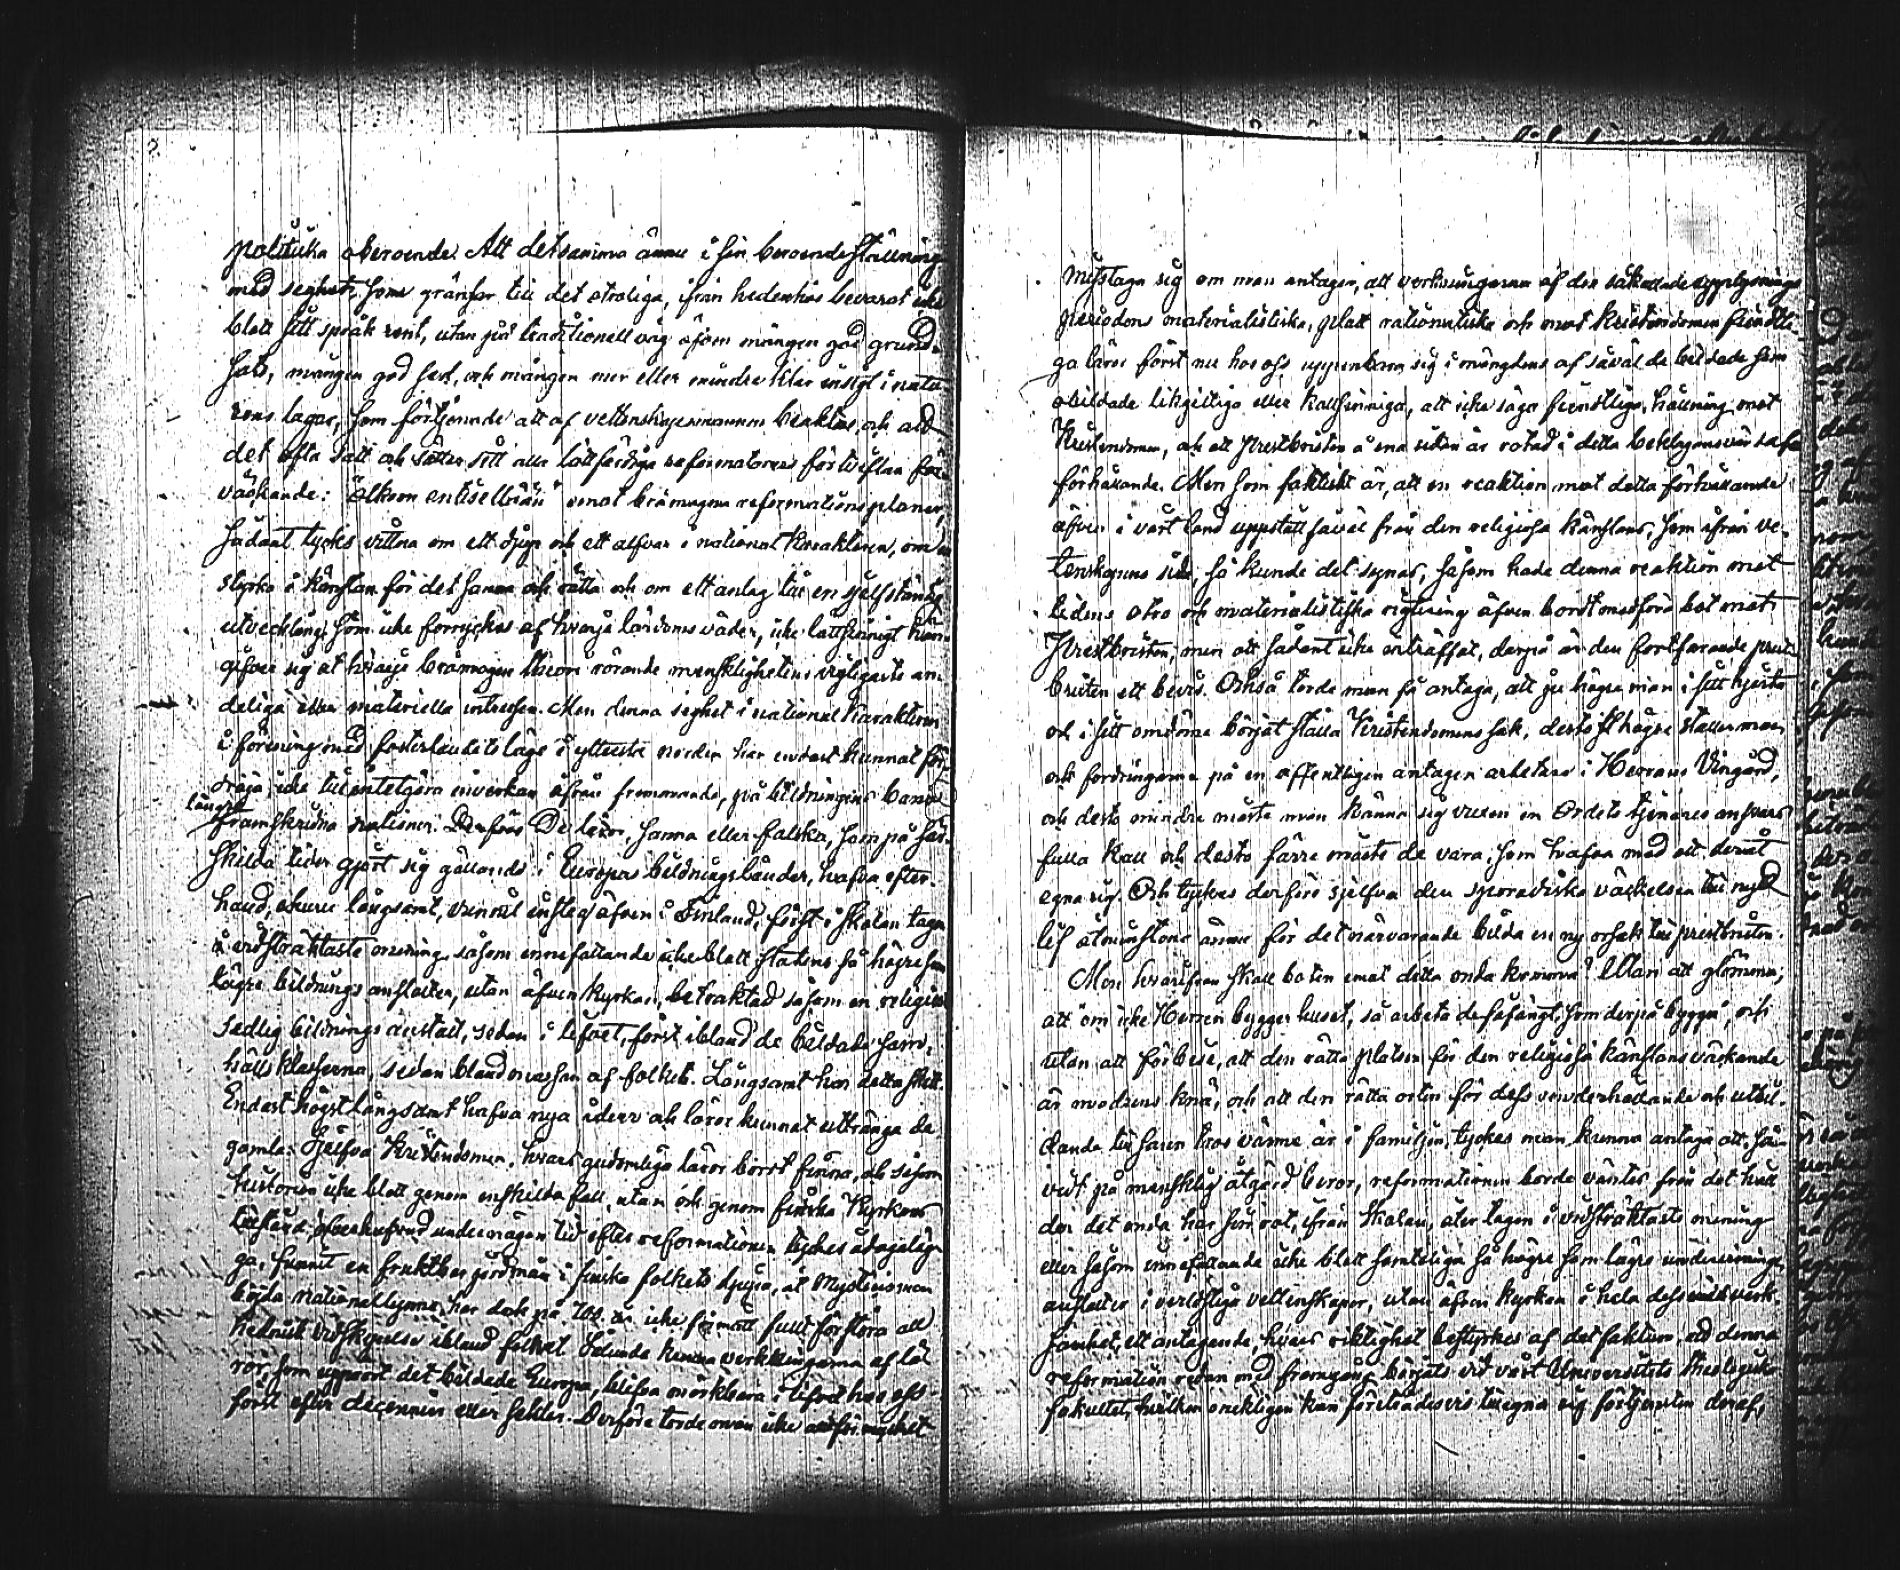 politiska oberoende. Att detsamma ännu i sin beroende ställning
med seghet, som gränsar till det otroliga, ifrån hedenhös bevarat icke
blott sitt språk rent, utan på traditionell väg äfven mången god grund-
sats, mången god sed, och mången mer eller mindre klar insigt i natu-
rens lagar, som förtjenade att af vettenskapsmannen beaktas, och att
det ofta satt och sätter sitt alla lättfärdiga reformatorers förtviflan
väckande: "älkoon entiselläsi" emot brämogna reformationsplaner,
sådant tyckes vittna om ett djup och ett allvar i national karakteren, om
styrka i känslan för det sanna och rätta och om ett anlag till en sjelfständig
utveckling, som icke förryckes af hvarje lärdoms väder, icke lättsinnigt hän-
gifver sig åt hvarje brämogen theori rörande mensklighetens vigtigaste an-
deliga eller materiella intressen. Men denna seghet i national karakteren
i förening med fosterlandets läge i yttersta norden har endast kunnat för-
dröja, icke tillintetgöra inverkan ifrån främmande, på bildningens bana
längre
framskridna nationer. De läror, sanna eller falska, som på sär-
skilda tider gjort sig gällande i Europas bildningsländer, hafva efter-
hand, ehuru långsamt, vunnit insteg äfven i Finland, först i skolan tagen
i vidsträktaste mening, såsom innefattande icke blott statens så högre som
lägre bildnings anstalter, utan äfven kyrkan, betraktad såsom en religiös
sedlig bildnings anstalt, sedan i lifvet, först ibland de bildade sam-
hällsklasserna, sedan bland massan af folket. Långsamt har detta skett.
Endast högst långsamt hafva nya idéer och läror kunnat uttränga de
gamla. Sjelfva Kristendomen, hvars gudomliga läror bordt finna, och såsom
historien icke blott genom enskilda fall, utan och genom finska Kyrkans
tillstånd under någon tid efter reformationen tyckes ådagaläg-
ga, funnit en fruktbar jordmån i finska folkets djupa, åt mysticismen
böjda nationallynne, har dock på 700 år icke förmått fullt förstöra all
hednisk vidskepelse ibland folket. Sålunda kunna verkningarna af lä-
ror, som upprört det bildade Europa, blifva märkbara i lifvet hos oss
först efter decennier eller sekler. Derföre torde man icke för mycket
misstaga sig om man antager, att verkningarna af den såkallade upplysnings
periodens materialistiska, platt rationalistiska och mot kristendomen fiendtli-
ga läror först nu hos oss uppenbara sig i mängdens af såväl de bildade som
obildade likgiltiga eller kallsinniga, att icke säga fiendtliga, hållning mot
Kristendomen, och att prestbristen å ena sidan är rotad i detta beklagansvärda
förhållande. Men som faktiskt är, att en reaktion mot detta förhållande
äfven i vårt land uppstått såväl från den religiösa känslans, som ifrån ve-
tenskapens sida, så kunde det synas, såsom hade denna reaktion mot
tidens otro och materialistiska rigtning äfven bordt medföra bot mot
Prestbristen, men att sådant icke inträffat, derpå är den fortfarande prest-
bristen ett bevis. Också torde man få antaga, att ju högre man i sitt hjerta
och i sitt omdöme börjat ställa Kristendomens sak, desto högre ställer man
och fordringarna på en offentligen antagen arbetare i Herrans Vingård,
och desto mindre måste man känna sig vuxen en Ordets tjenares ansvars
fulla kall och desto färre måste de vara, som hafva mod att deråt
egna sig. Och tyckes derföre sjelfva den sporadiska väckelsen till nytt
lif åtminstone ännu för det närvarande bilda en ny orsak till prestbristen.
Men hvarifrån skall boten emot detta onda komma? Utan att glömma,
att "om icke Herren bygger huset, så arbeta de fåfängt, som derpå bygga", och
utan att förbise, att den rätta platsen för den religiösa känslans väckande
är modrens knä, och att den rätta orten för dess vidmakthållande och utbil-
dande till sann tros värme är i familjen, tyckes man kunna antaga att, så-
vidt på mensklig åtgärd beror, reformationen borde väntas från det håll
der det onda har sin rot, ifrån skolan, åter tagen i vidsträktaste mening
eller såsom innefattande icke blott samteliga så högre som lägre undervisnings
anstalter i verldsliga vettenskaper, utan äfven kyrkan i hela dess verk-
samhet, ett antagande, hvars riktighet bestyrkes af det faktum, att denna
reformation redan med framgång börjats vid vårt Universitets theologiska
fakultet, hvilken onekligen kan företrädesvis tillegna sig förtjensten deraf,